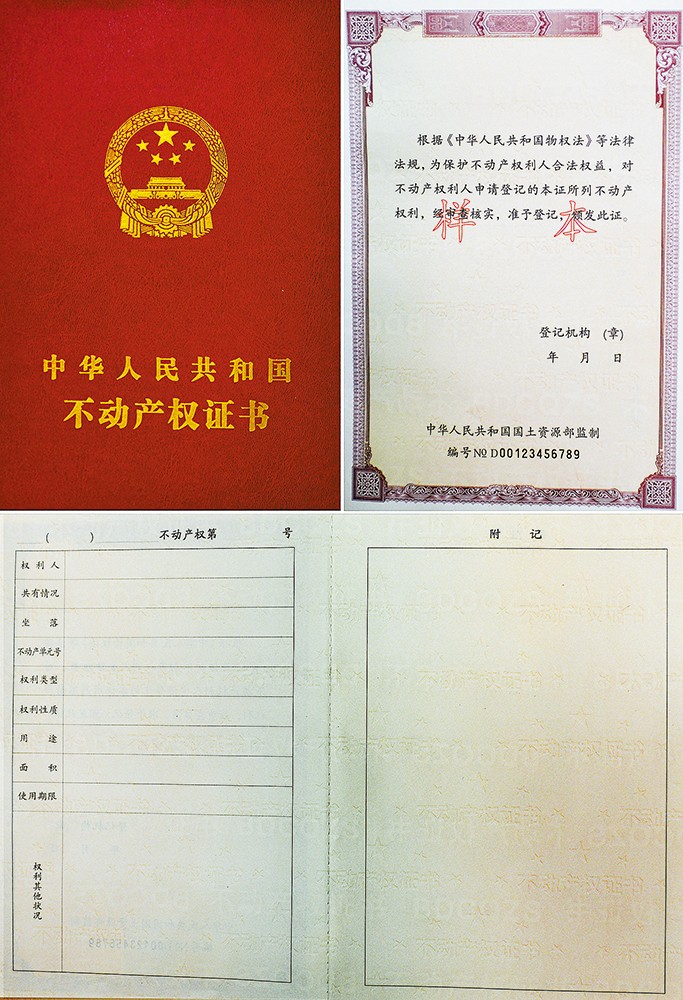 中华人民共和国
不动产权证书
根据《中华人民共和国物权法》等法律
法规，为保护不动产权利人合法权益，对
不动产权利人申请登记的本证所列不动产
权利，经审查核实，准予登记，颁发此证。
样 本
登记机构 （章）
年 月 日
中华人民共和国国土资源部监制
编号 № D00123456789
（ ） 不动产权第 号
权利人
共有情况
坐 落
不动产单元号
权利类型
权利性质
用 途
面 积
使用期限
权利其他状况
附 记